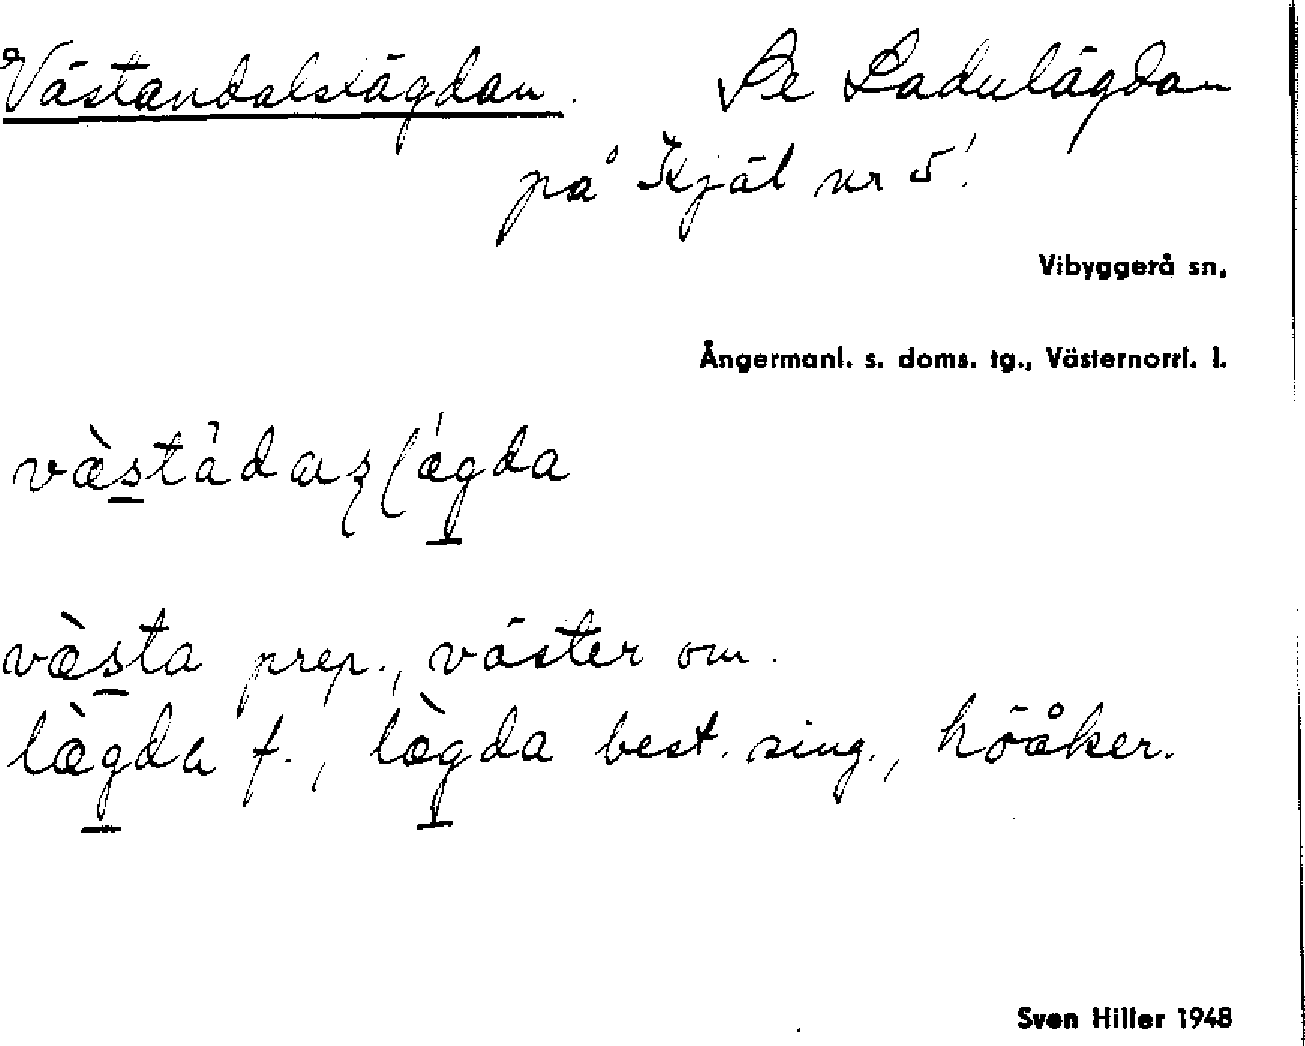 Västandalslägdan. Se Ladulägdan
på Kjäl nr 5!
Vibyggerå sn,
Ångermanl. s. doms. tg., Västernorrl. l.
væ̀stàdaʂlǽgda
væ̀sta prep., väster om.
læ̀gda f., læ̀gda best. sing., höåker.
Sven Hiller 1948